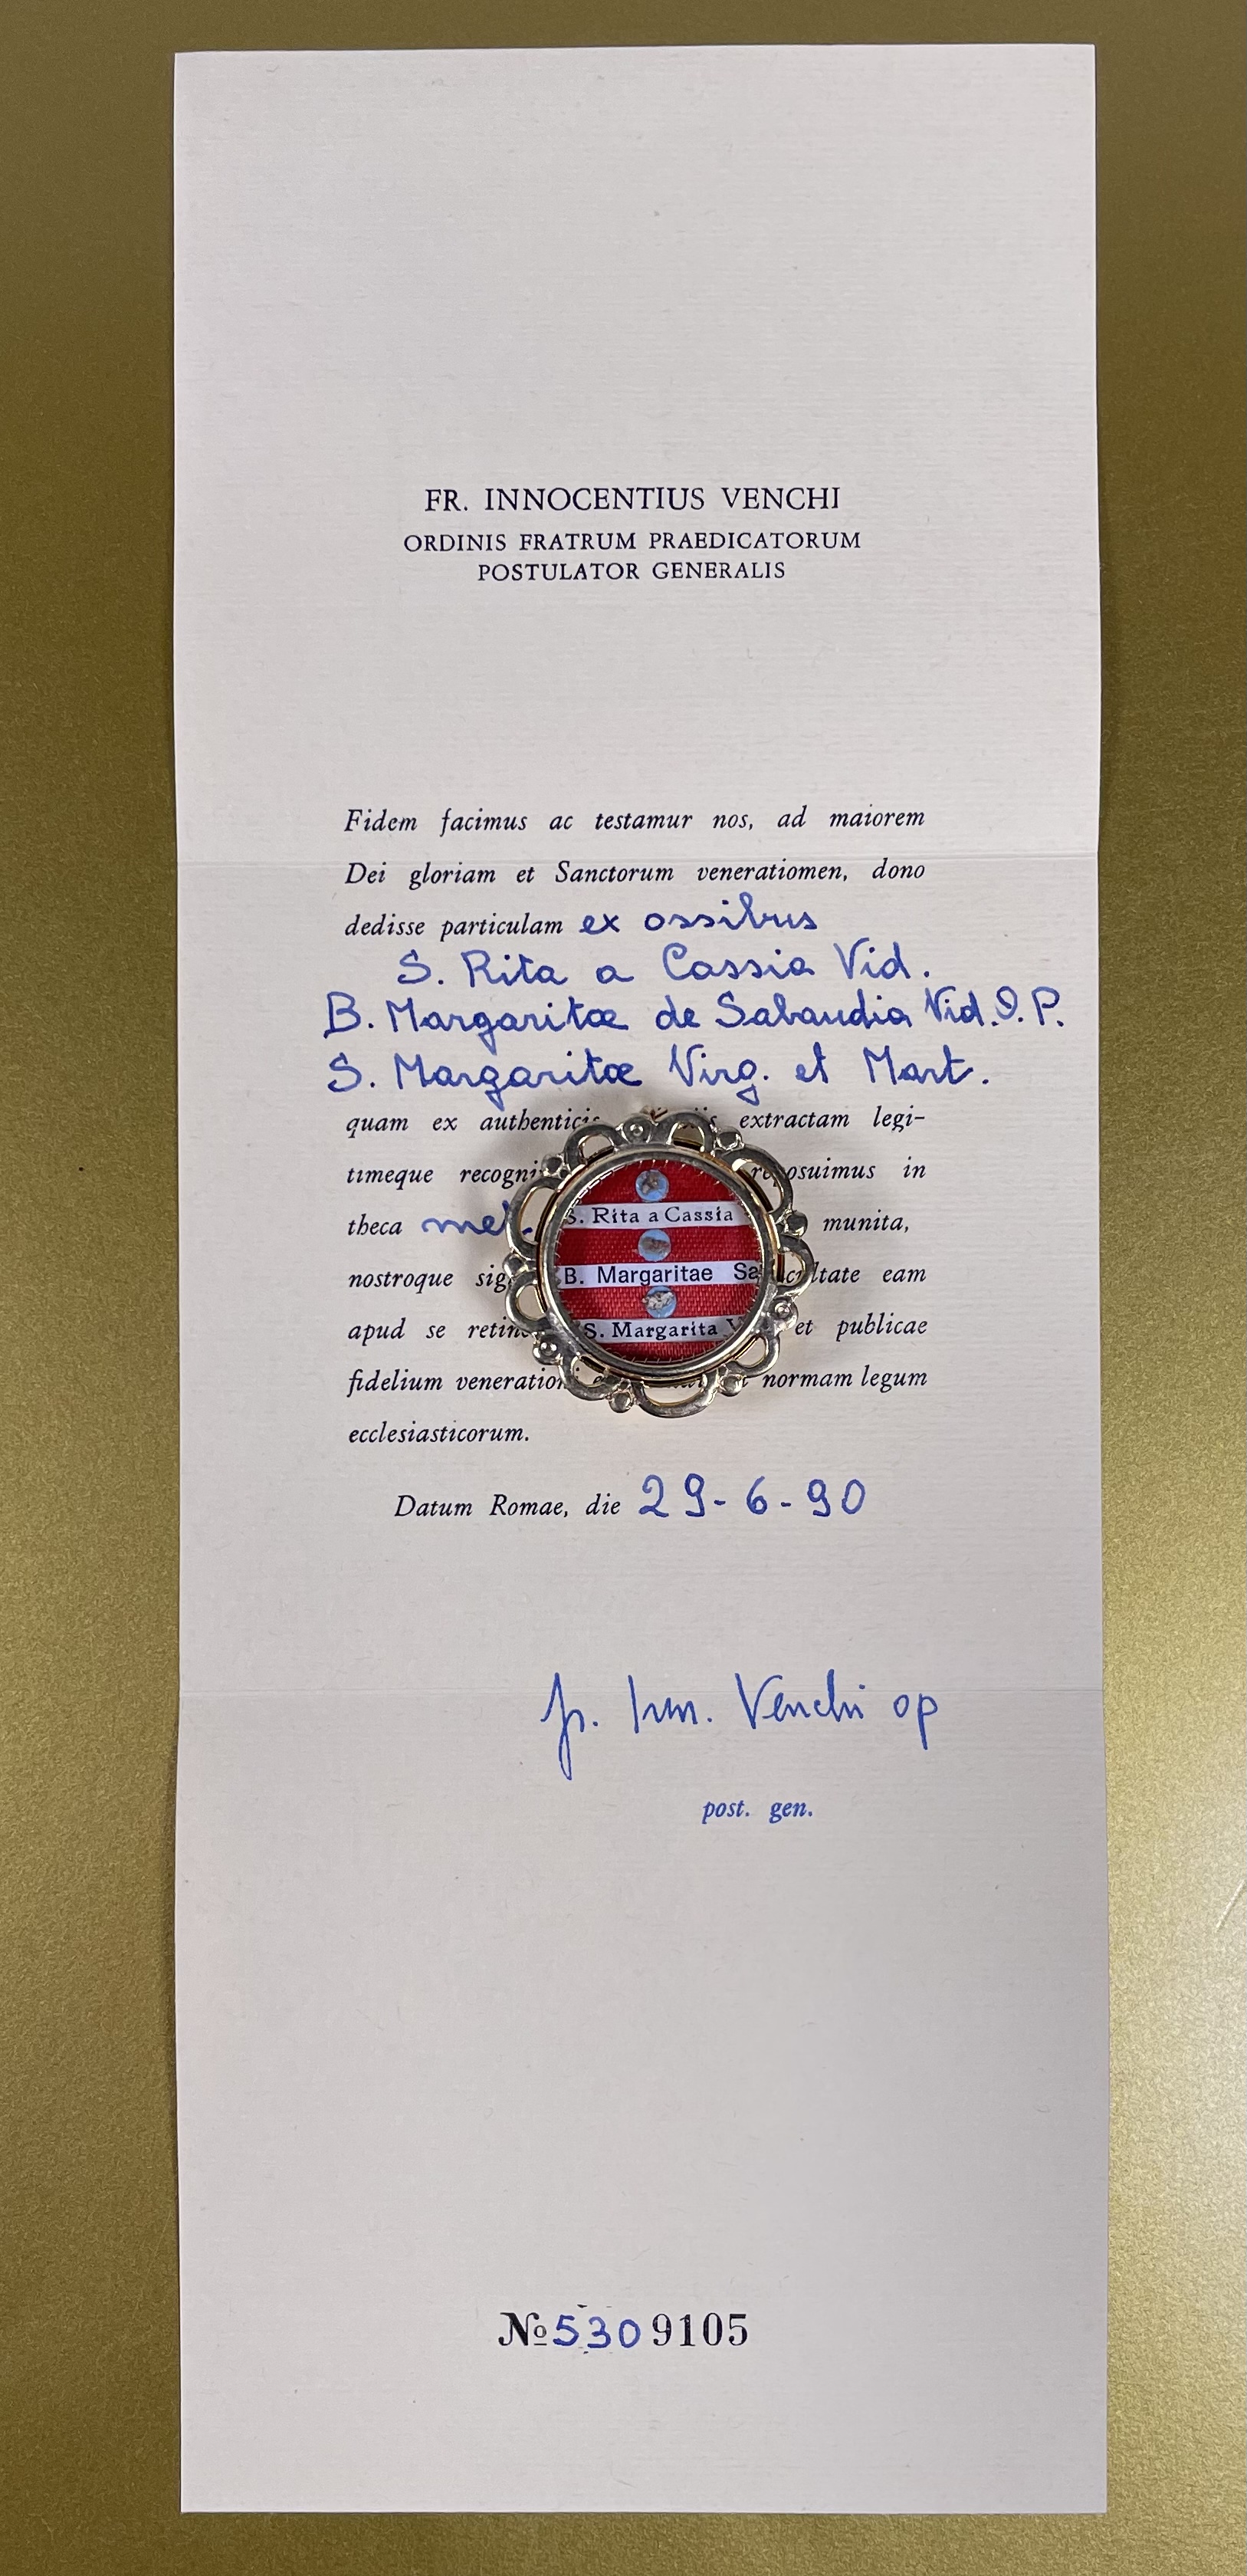 FR. INNOCENTIUS VENCHI
ORDINIS FRATRUM PRAEDICATORUM
POSTULATOR GENERALIS
Fidem facimus ac testamur nos, ad maiorem
Dei gloriam et Sanctorum veneratiomen, dono
dedisse particulam ex ossibus
S. Rita a Cassia Vid.
B. Margaritæ de Sabaudia Vid. O. P.
S. Margaritæ Virg. et Mart.
quam ex authenticis extractam legi-
timeque reposuimus in
theca met. munita,
nostroque eam
apud se et publicae
fidelium normam legum
ecclesiasticorum.
S. Rita a Cassia
B. Margaritae
S. Margarita
Datum Romae, die 29-6-90
fr. Inn. Venchi op
post. gen.
№ 530 9105